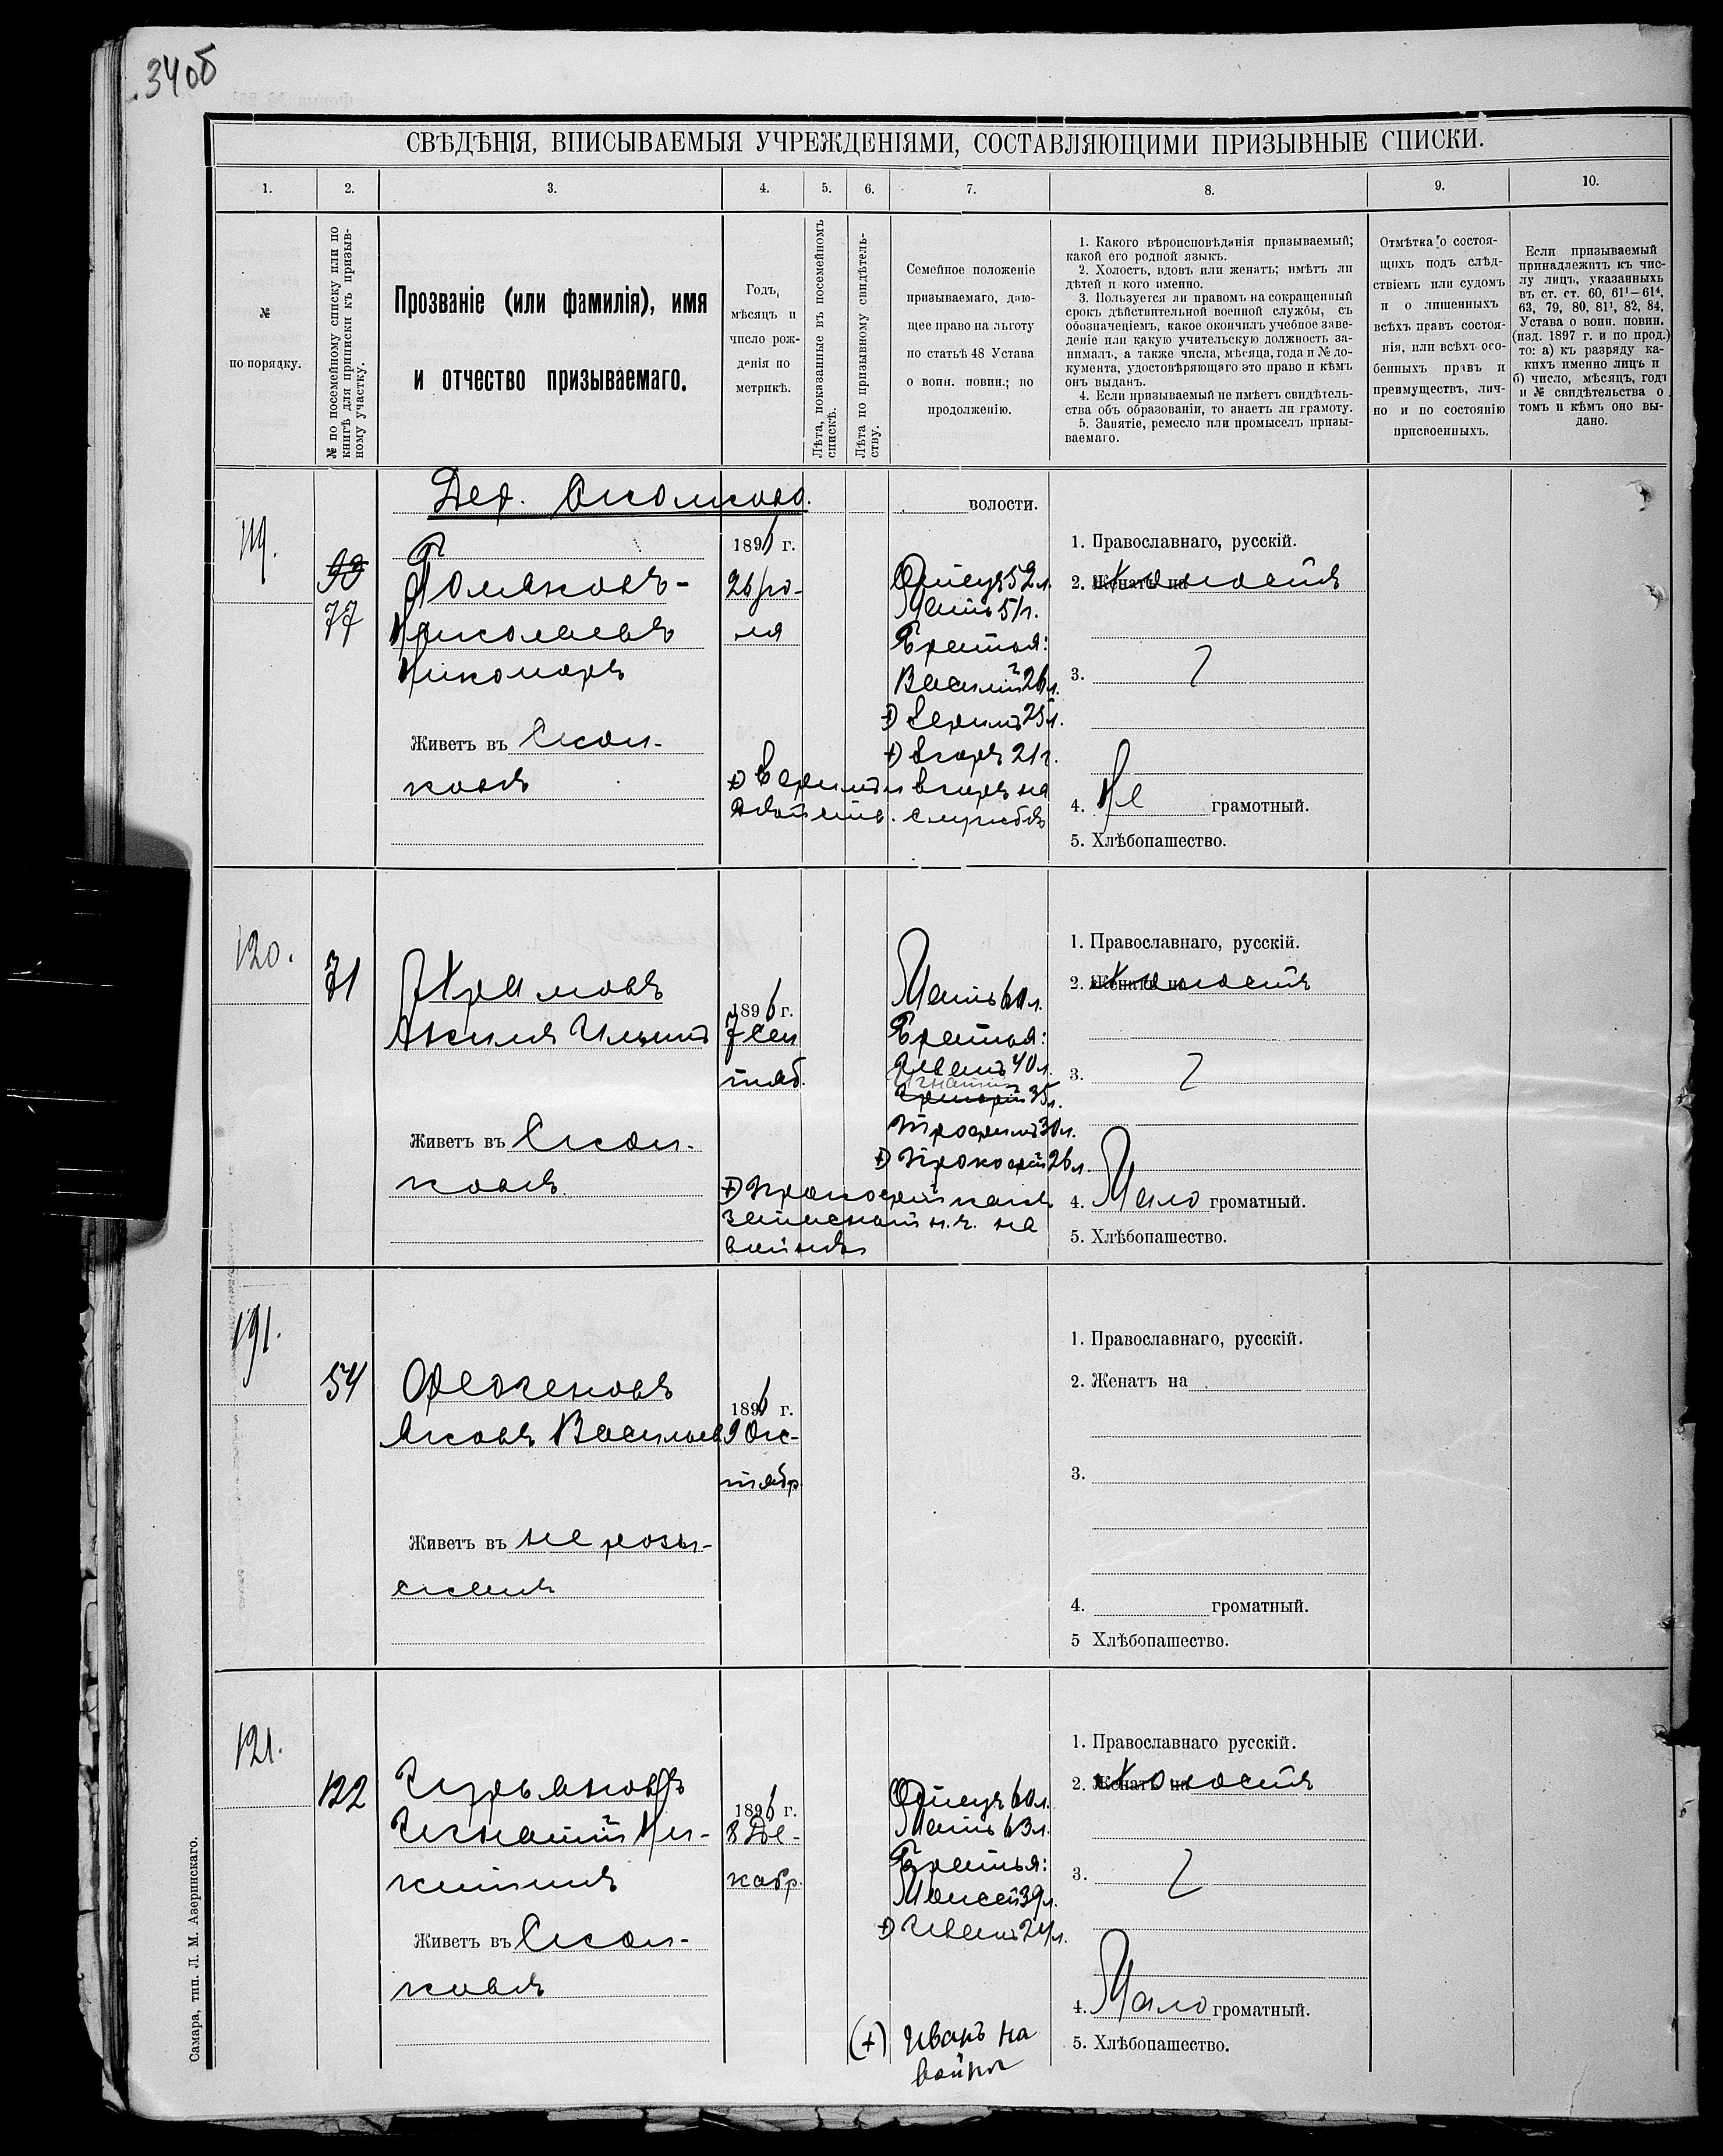 34об
СВѢДѢНІЯ, ВПИСЫВАЕМЫЯ УЧРЕЖДЕНІЯМИ, СОСТАВЛЯЮЩИМИ ПРИЗЫВНЫЕ СПИСКИ.
1. 2. 3. 4. 5. 6. 7. 8. 9. 10.
№
по порядку.
№ по посемейному списку или по
книгѣ для приписки къ призыв-
ному участку.
Прозваніе (или фамилія), имя
и отчество призываемаго.
Годъ,
мѣсяцъ и
число рож-
денія по
метрикѣ.
Лѣта, показанные въ посемейномъ
спискѣ.
Лѣта по призывному свидѣтель-
ству.
Семейное положеніе
призываемаго, даю-
щее право на льготу
по статьѣ 48 Устава
о воин. повин.; по
продолженію.
1. Какого вѣроисповѣданія призываемый;
какой его родной языкъ.
2. Холостъ, вдовъ или женатъ; имѣтъ ли
дѣтей и кого именно.
3. Пользуется ли правомъ на сокращенный
срокъ дѣйствительной военной службы, съ
обозначеніемъ, какое окончилъ учебное заве-
деніе или какую учительскую должность за-
нималъ, а также числа, мѣсяца, года и № до-
кумента, удостовѣряющаго это право и кѣмъ
онъ выданъ.
4. Если призываемый не имѣетъ свидѣтель-
ства объ образованіи, то знаетъ ли грамоту.
5. Занятіе, ремесло или промыселъ призы-
ваемаго.
Отмѣтка о состоя-
щихъ подъ слѣд-
ствіемъ или судомъ
и о лишенныхъ
всѣхъ правъ состоя-
нія, или всѣхъ осо-
бенныхъ правъ и
преимуществъ, лич-
но и по состоянію
присвоенныхъ.
Если призываемый
принадлежитъ къ чис-
лу лицъ, указанныхъ
въ ст. ст. 60, 61¹—61⁴,
63, 79, 80, 81¹, 82, 84,
Устава о воин. повин.
(изд. 1897 г. и по прод.)
то: а) къ разряду ка-
кихъ именно лицъ и
б) число, мѣсяцъ, годъ
и № свидѣтельства о
томъ и кѣмъ оно вы-
дано.
Дер.
волости.
119.
99
77
Поляковъ-
Николаевъ
Никоноръ
Живетъ въ Скол-
ковѣ
1896 г.
26 ію-
ля
Отецъ 52 л.
Мать 51 г.
Братья:
Василій 26 л.
+) 25 л.
+) Егоръ 21 г.
+) и Егоръ на
дѣйств. службѣ
1. Православнаго, русскій.
2. Женатъ на Холостъ
3.
4. Не грамотный.
5. Хлѣбопашество.
120.
71
Храмовъ
Ильинъ
Живетъ въ Скол-
ковѣ.
1896 г.
7 Сен
тяб.
Мать 60 л.
Братья:
Иванъ 40 л.
Игнатій
Григорій 35 л.
Трофимъ 30 л.
+) Прокофій 26 л.
+) Прокофій какъ
запасный н. ч. на
войнѣ
1. Православнаго, русскій.
2. Женатъ на Холостъ
3.
4. Мало громатный.
5. Хлѣбопашество.
191.
54
Федченовъ
Яковъ Васильев
Живетъ въ не розы-
сканъ
1896 г.
9 Ок-
тябр
1. Православнаго, русскій.
2. Женатъ на
3.
4. громатный.
5 Хлѣбопашество.
121.
122
Чурьяновъ
Игнатій Ни-
китинъ
Живетъ въ Скол-
ковѣ
1896 г.
8 Де-
кабр.
Отецъ 60 л.
Мать 63 л.
Братья:
Моисей 39 л.
+) Иванъ 24 л.
(+) Иванъ на
войнѣ
1. Православнаго русскій.
2. Женатъ на Холостъ
3.
4. Мало громатный.
5. Хлѣбопашество.
Самара, тип. Л. М. Азеринскаго.